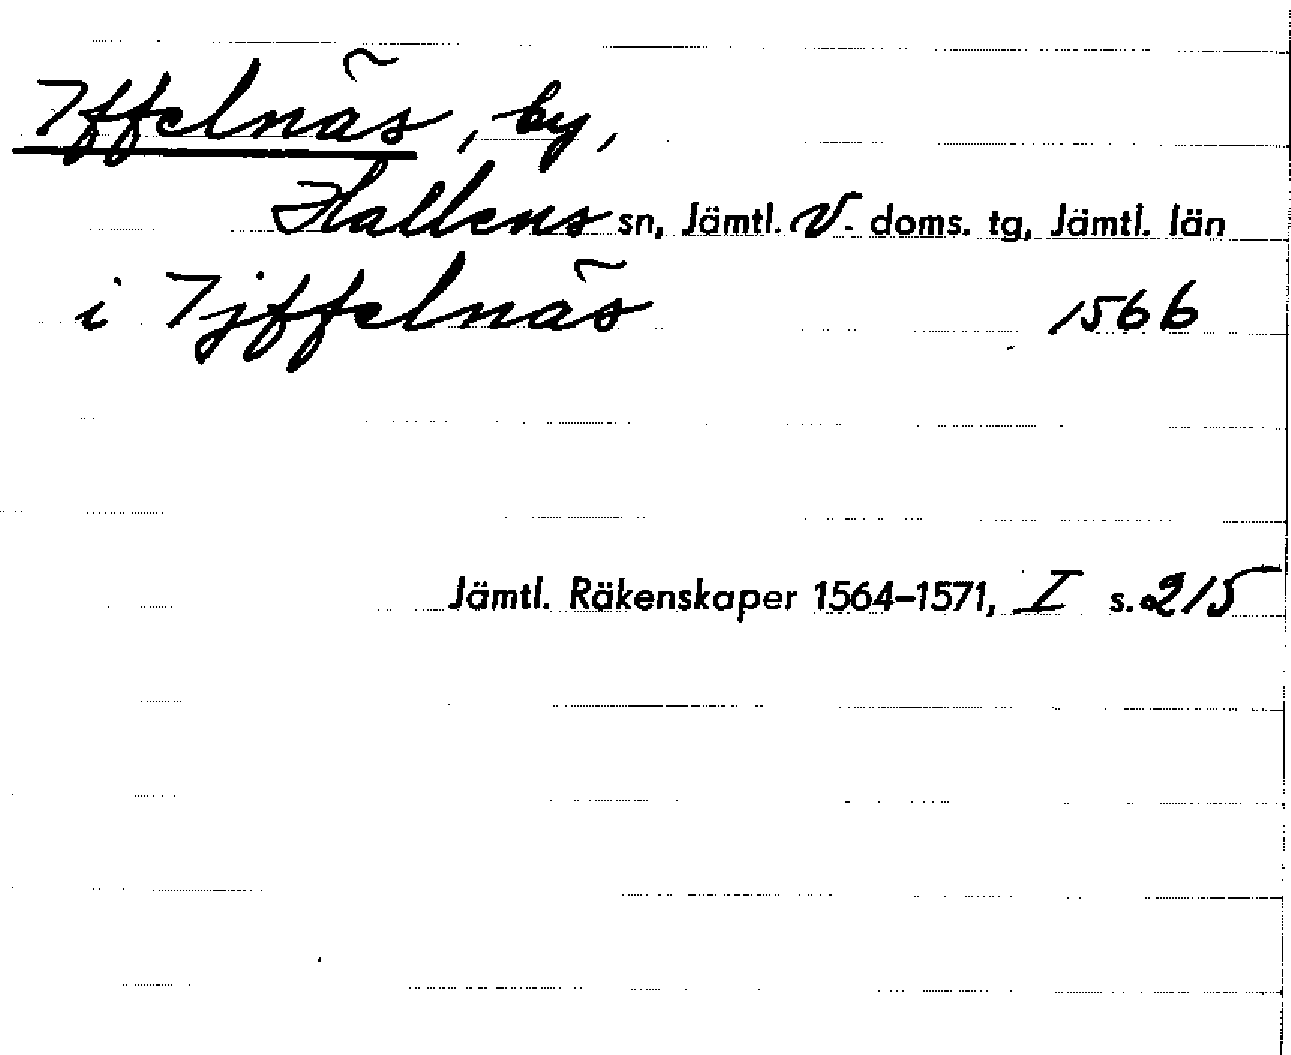 Iffelnäs, by,
Hallens sn, Jämtl. V. doms. tg, Jämtl. län
i Ijffelnäs 1566
Jämtl. Räkenskaper 1564–1571, I s. 215